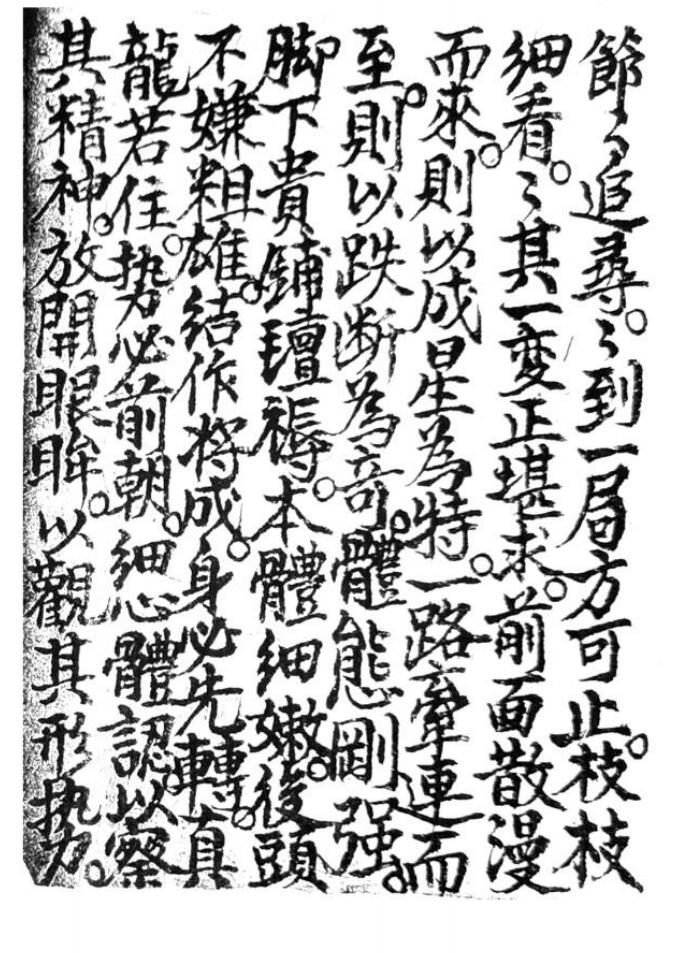 節々追尋。々到一局方可止。枝枝
細看。々其一変正堪求。前面散漫
而來。則以成星為特。一路牽連而
至。則以跌断為竒。體態剛强。
脚下貴鋪氊褥。本體细嫩。後頭
不嫌粗雄。結作将成。身必先轉。真
龍若住。势必前朝。细心體認。以察
其精神。放開眼眸。以觀其形势。